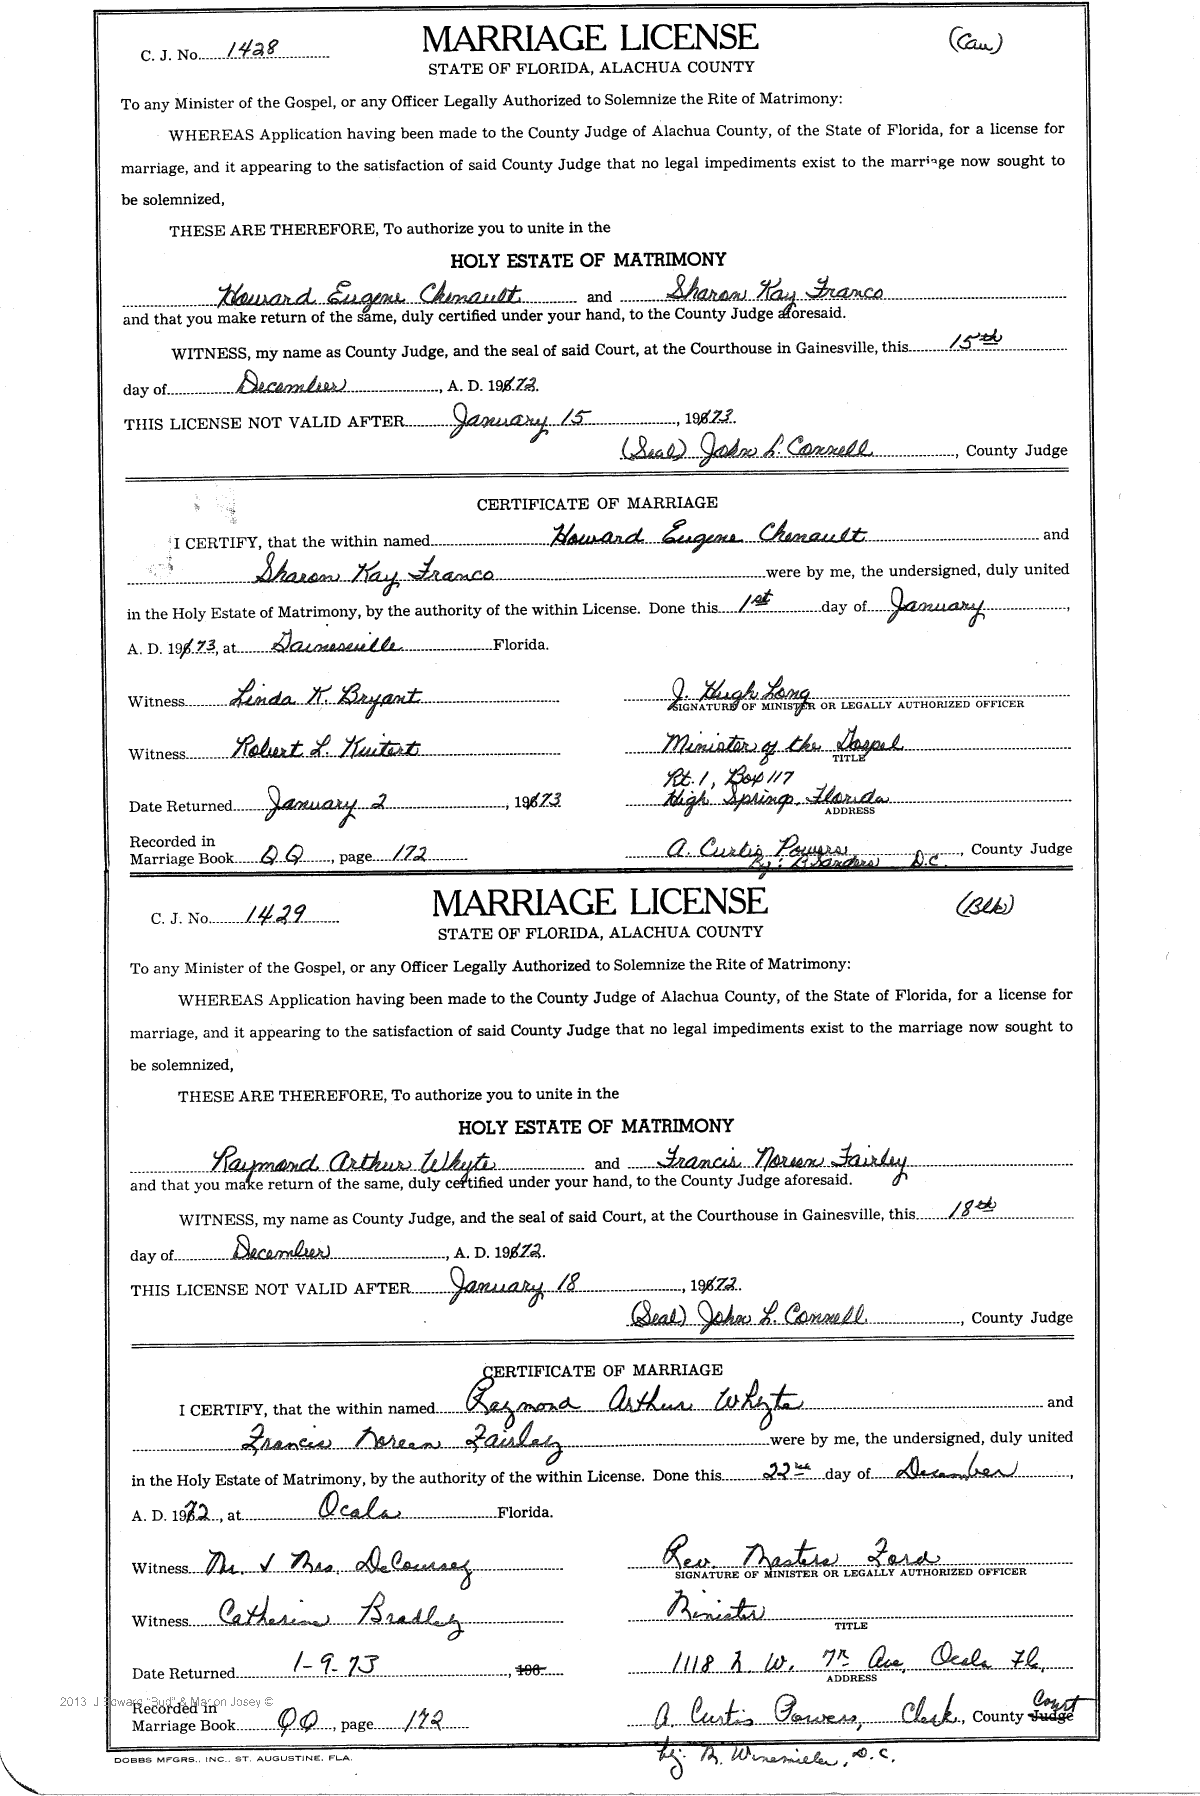 C. J. No. 1428
MARRIAGE LICENSE
(Cau)
STATE OF FLORIDA, ALACHUA COUNTY
To any Minister of the Gospel, or any Officer Legally Authorized to Solemnize the Rite of Matrimony:
WHEREAS Application having been made to the County Judge of Alachua County, of the State of Florida, for a license for
marriage, and it appearing to the satisfaction of said County Judge that no legal impediments exist to the marriage now sought to
be solemnized,
THESE ARE THEREFORE, To authorize you to unite in the
HOLY ESTATE OF MATRIMONY
Howard Eugene Chenault and Sharon Kay Franco
and that you make return of the same, duly certified under your hand, to the County Judge aforesaid.
WITNESS, my name as County Judge, and the seal of said Court, at the Courthouse in Gainesville, this 15th
day of December, A. D. 1972.
THIS LICENSE NOT VALID AFTER January 15, 1973.
(Seal) John L. Connell, County Judge
CERTIFICATE OF MARRIAGE
I CERTIFY, that the within named Howard Eugene Chenault and
Sharon Kay Franco were by me, the undersigned, duly united
in the Holy Estate of Matrimony, by the authority of the within License. Done this 1st day of January,
A. D. 1973, at Gainesville Florida.
Witness Linda K. Bryant J. Hugh Long
SIGNATURE OF MINISTER OR LEGALLY AUTHORIZED OFFICER
Witness Robert L. Kuitert Minister of the Gospel
TITLE
Rt. 1, Box 117
Date Returned January 2, 1973 High Springs, Florida
ADDRESS
Recorded in
Marriage Book QQ, page 172 A. Curtis Powers, County Judge
By: B Sanders D.C.
C. J. No. 1429
MARRIAGE LICENSE
(Blk)
STATE OF FLORIDA, ALACHUA COUNTY
To any Minister of the Gospel, or any Officer Legally Authorized to Solemnize the Rite of Matrimony:
WHEREAS Application having been made to the County Judge of Alachua County, of the State of Florida, for a license for
marriage, and it appearing to the satisfaction of said County Judge that no legal impediments exist to the marriage now sought to
be solemnized,
THESE ARE THEREFORE, To authorize you to unite in the
HOLY ESTATE OF MATRIMONY
Raymond Arthur Whyte and Francis Noreen Fairley
and that you make return of the same, duly certified under your hand, to the County Judge aforesaid.
WITNESS, my name as County Judge, and the seal of said Court, at the Courthouse in Gainesville, this 18th
day of December, A. D. 1972.
THIS LICENSE NOT VALID AFTER January 18, 1972.
(Seal) John L. Connell, County Judge
CERTIFICATE OF MARRIAGE
I CERTIFY, that the within named Raymond Arthur Whyte and
Francis Noreen Fairley were by me, the undersigned, duly united
in the Holy Estate of Matrimony, by the authority of the within License. Done this 22nd day of December,
A. D. 1972, at Ocala Florida.
Witness Mr. & Mrs. DeCoursey Rev. Masters Ford
SIGNATURE OF MINISTER OR LEGALLY AUTHORIZED OFFICER
Witness Catherine Bradley Minister
TITLE
Date Returned 1-9-73, 196 1118 N. W. 7th Ave, Ocala Fla,
ADDRESS
2013 J Edward "Bud" & Marion Josey ©
Recorded in
Marriage Book QQ, page 172 A. Curtis Powers, Clerk, County Judge Court
by: B. Winemiller, D.C.
DOBBS MFGRS., INC., ST. AUGUSTINE, FLA.